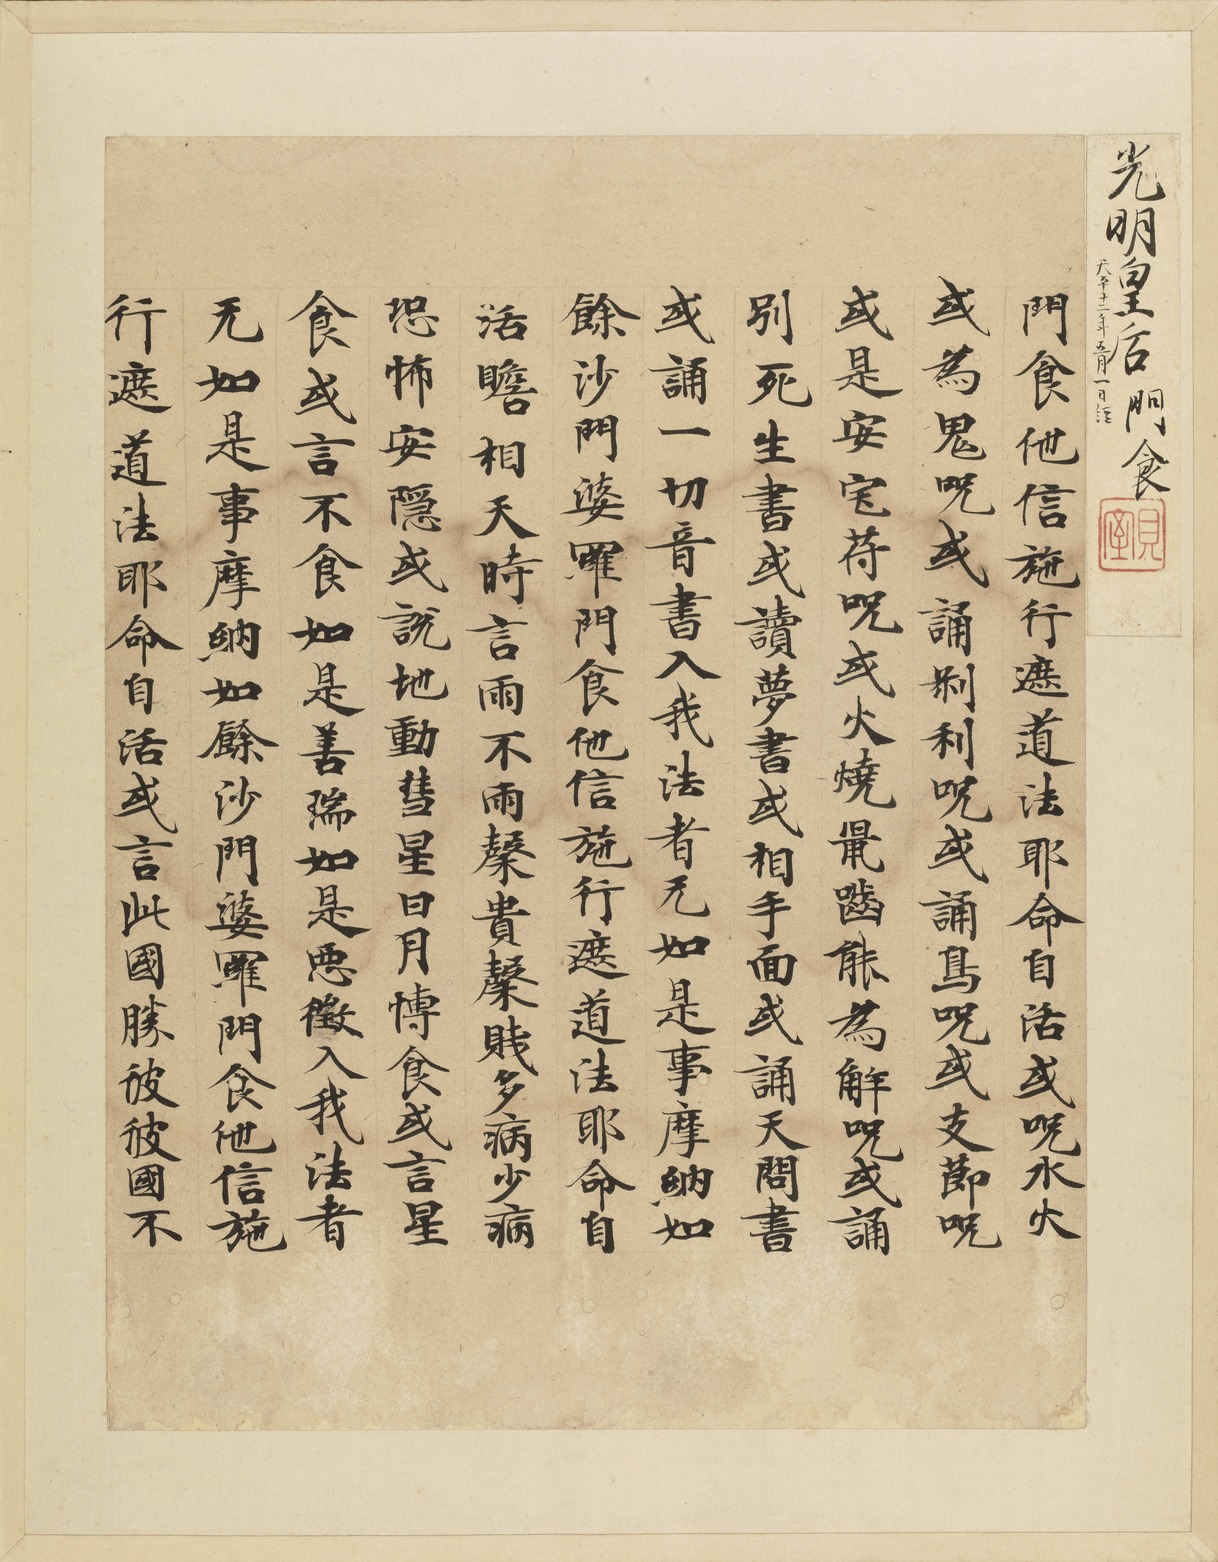 光明皇后 門食
天平十二年五月一日経
門食他信施行遮道法耶命自活或呪水火
或為鬼呪或誦刹利呪或誦鳥呪或支節呪
或是安宅符呪或火燒鼠嚙能為解呪或誦
別死生書或讀夢書或相手面或誦天問書
或誦一切音書入我法者无如是事摩納如
餘沙門婆羅門食他信施行遮道法耶命自
活瞻相天時言雨不雨糓貴糓賤多病少病
恐怖安隱或說地動彗星日月博食或言星
食或言不食如是善瑞如是惡徵入我法者
无如是事摩納如餘沙門婆羅門食他信施
行遮道法耶命自活或言此國勝彼彼國不